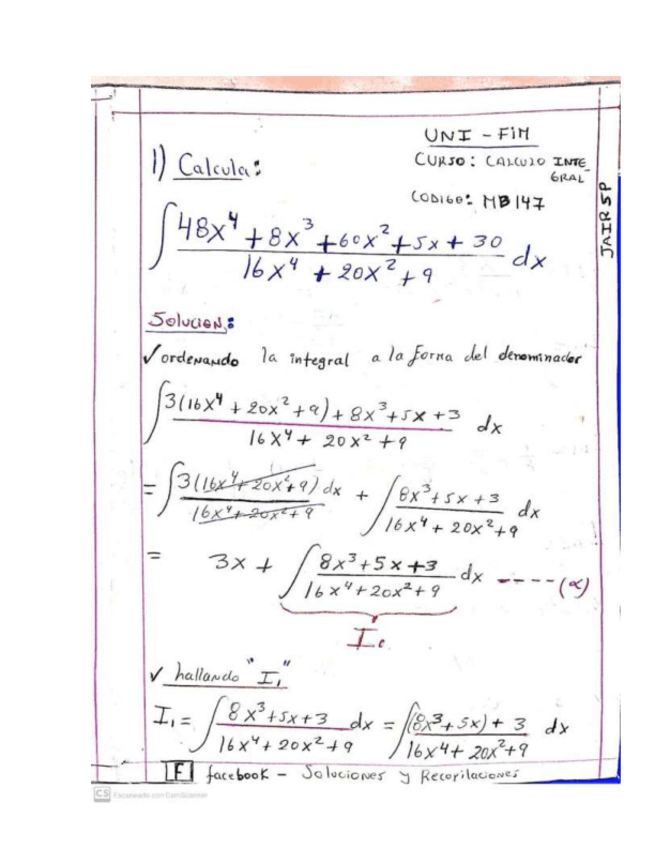 UNI - FIM
1) Calcula:
CURSO: CALCULO INTE-
GRAL
CODIGO: MB147
JAIR SP
∫ (48x⁴ + 8x³ + 60x² + 5x + 30)/(16x⁴ + 20x² + 9) dx
Solucion:
✓ ordenando la integral a la forma del denominador
∫ (3(16x⁴ + 20x² + 9) + 8x³ + 5x + 3)/(16x⁴ + 20x² + 9) dx
= ∫ (3(16x⁴ + 20x² + 9))/(16x⁴ + 20x² + 9) dx + ∫ (8x³ + 5x + 3)/(16x⁴ + 20x² + 9) dx
= 3x + ∫ (8x³ + 5x + 3)/(16x⁴ + 20x² + 9) dx ---- (α)
✓ hallando "I₁"
I₁ = ∫ (8x³ + 5x + 3)/(16x⁴ + 20x² + 9) dx = ∫ ((8x³ + 5x) + 3)/(16x⁴ + 20x² + 9) dx
F facebook - Soluciones y Recopilaciones
CS Escaneado con CamScanner